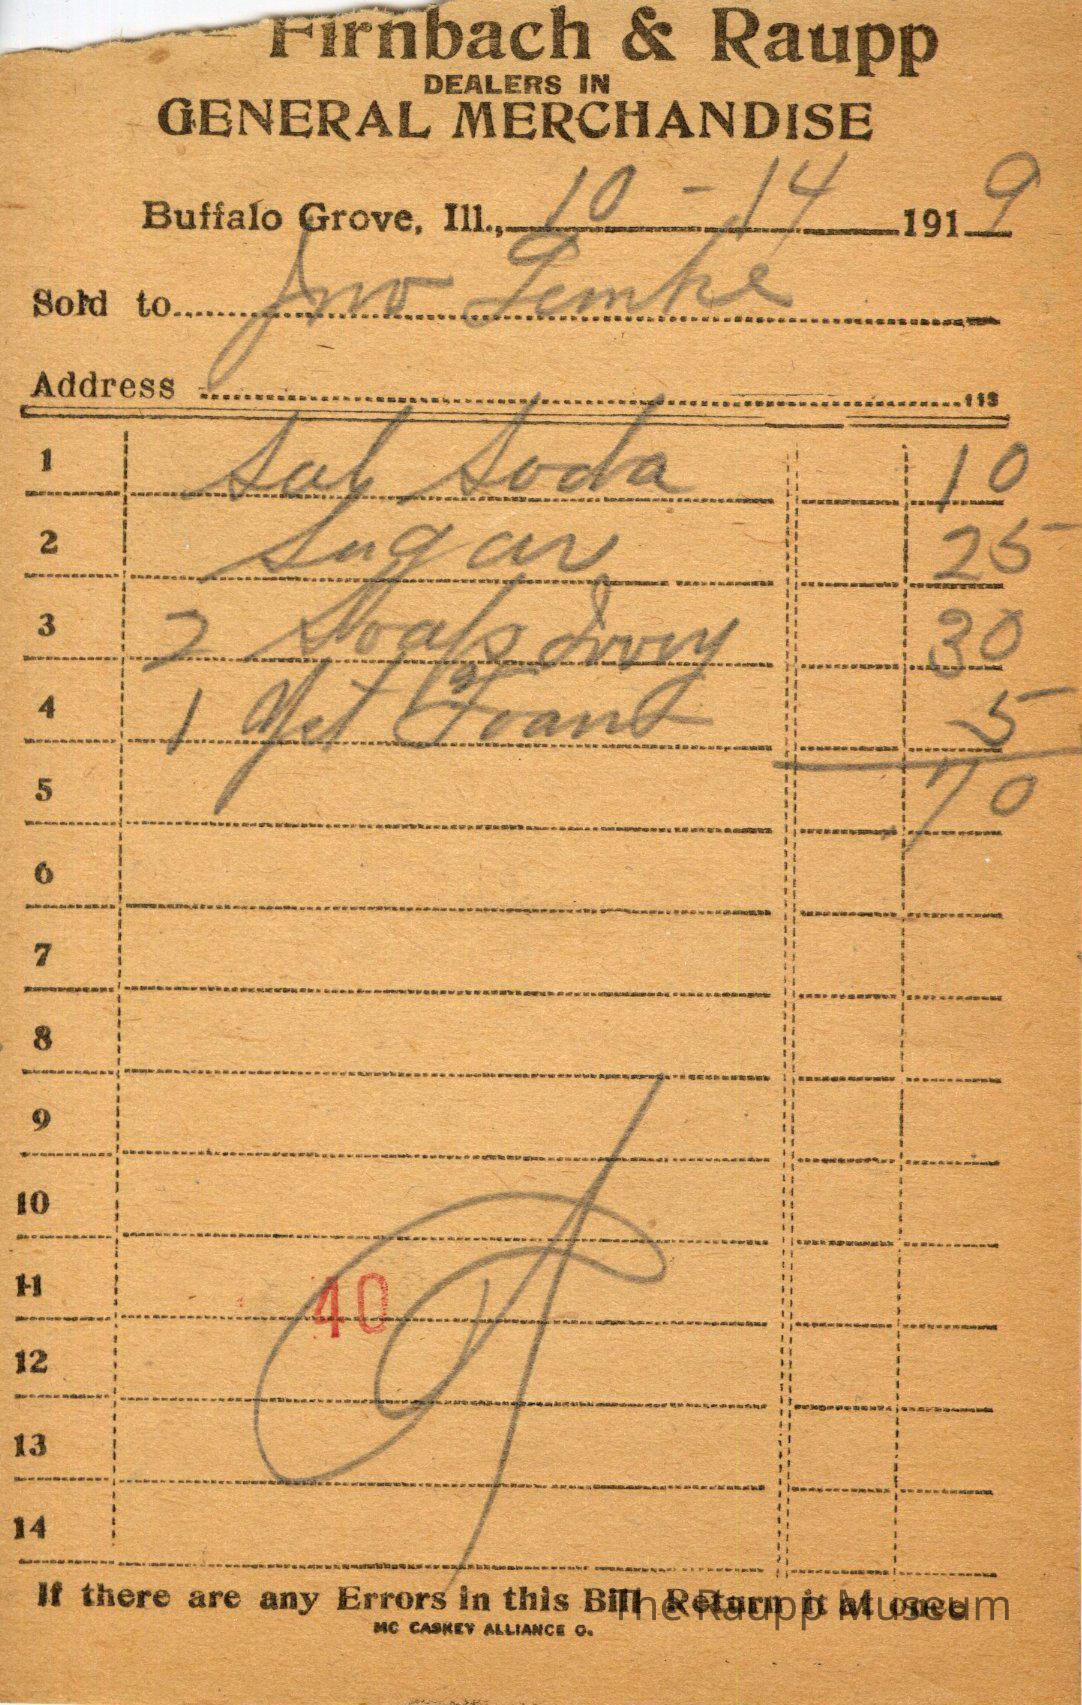 Firnbach & Raupp
DEALERS IN
GENERAL MERCHANDISE
Buffalo Grove, Ill., 10 - 14 1919
Sold to Jno Lemke
Address
113
1 Sal Soda 10
2 Sugar 25
3 2 Soaps Ivory 30
4 1 Yst Foam 5
5 70
6
7
8
9
10
11
40
12
13
14
If there are any Errors in this Bill Return it at once
The Raupp Museum
MC CASKEY ALLIANCE O.